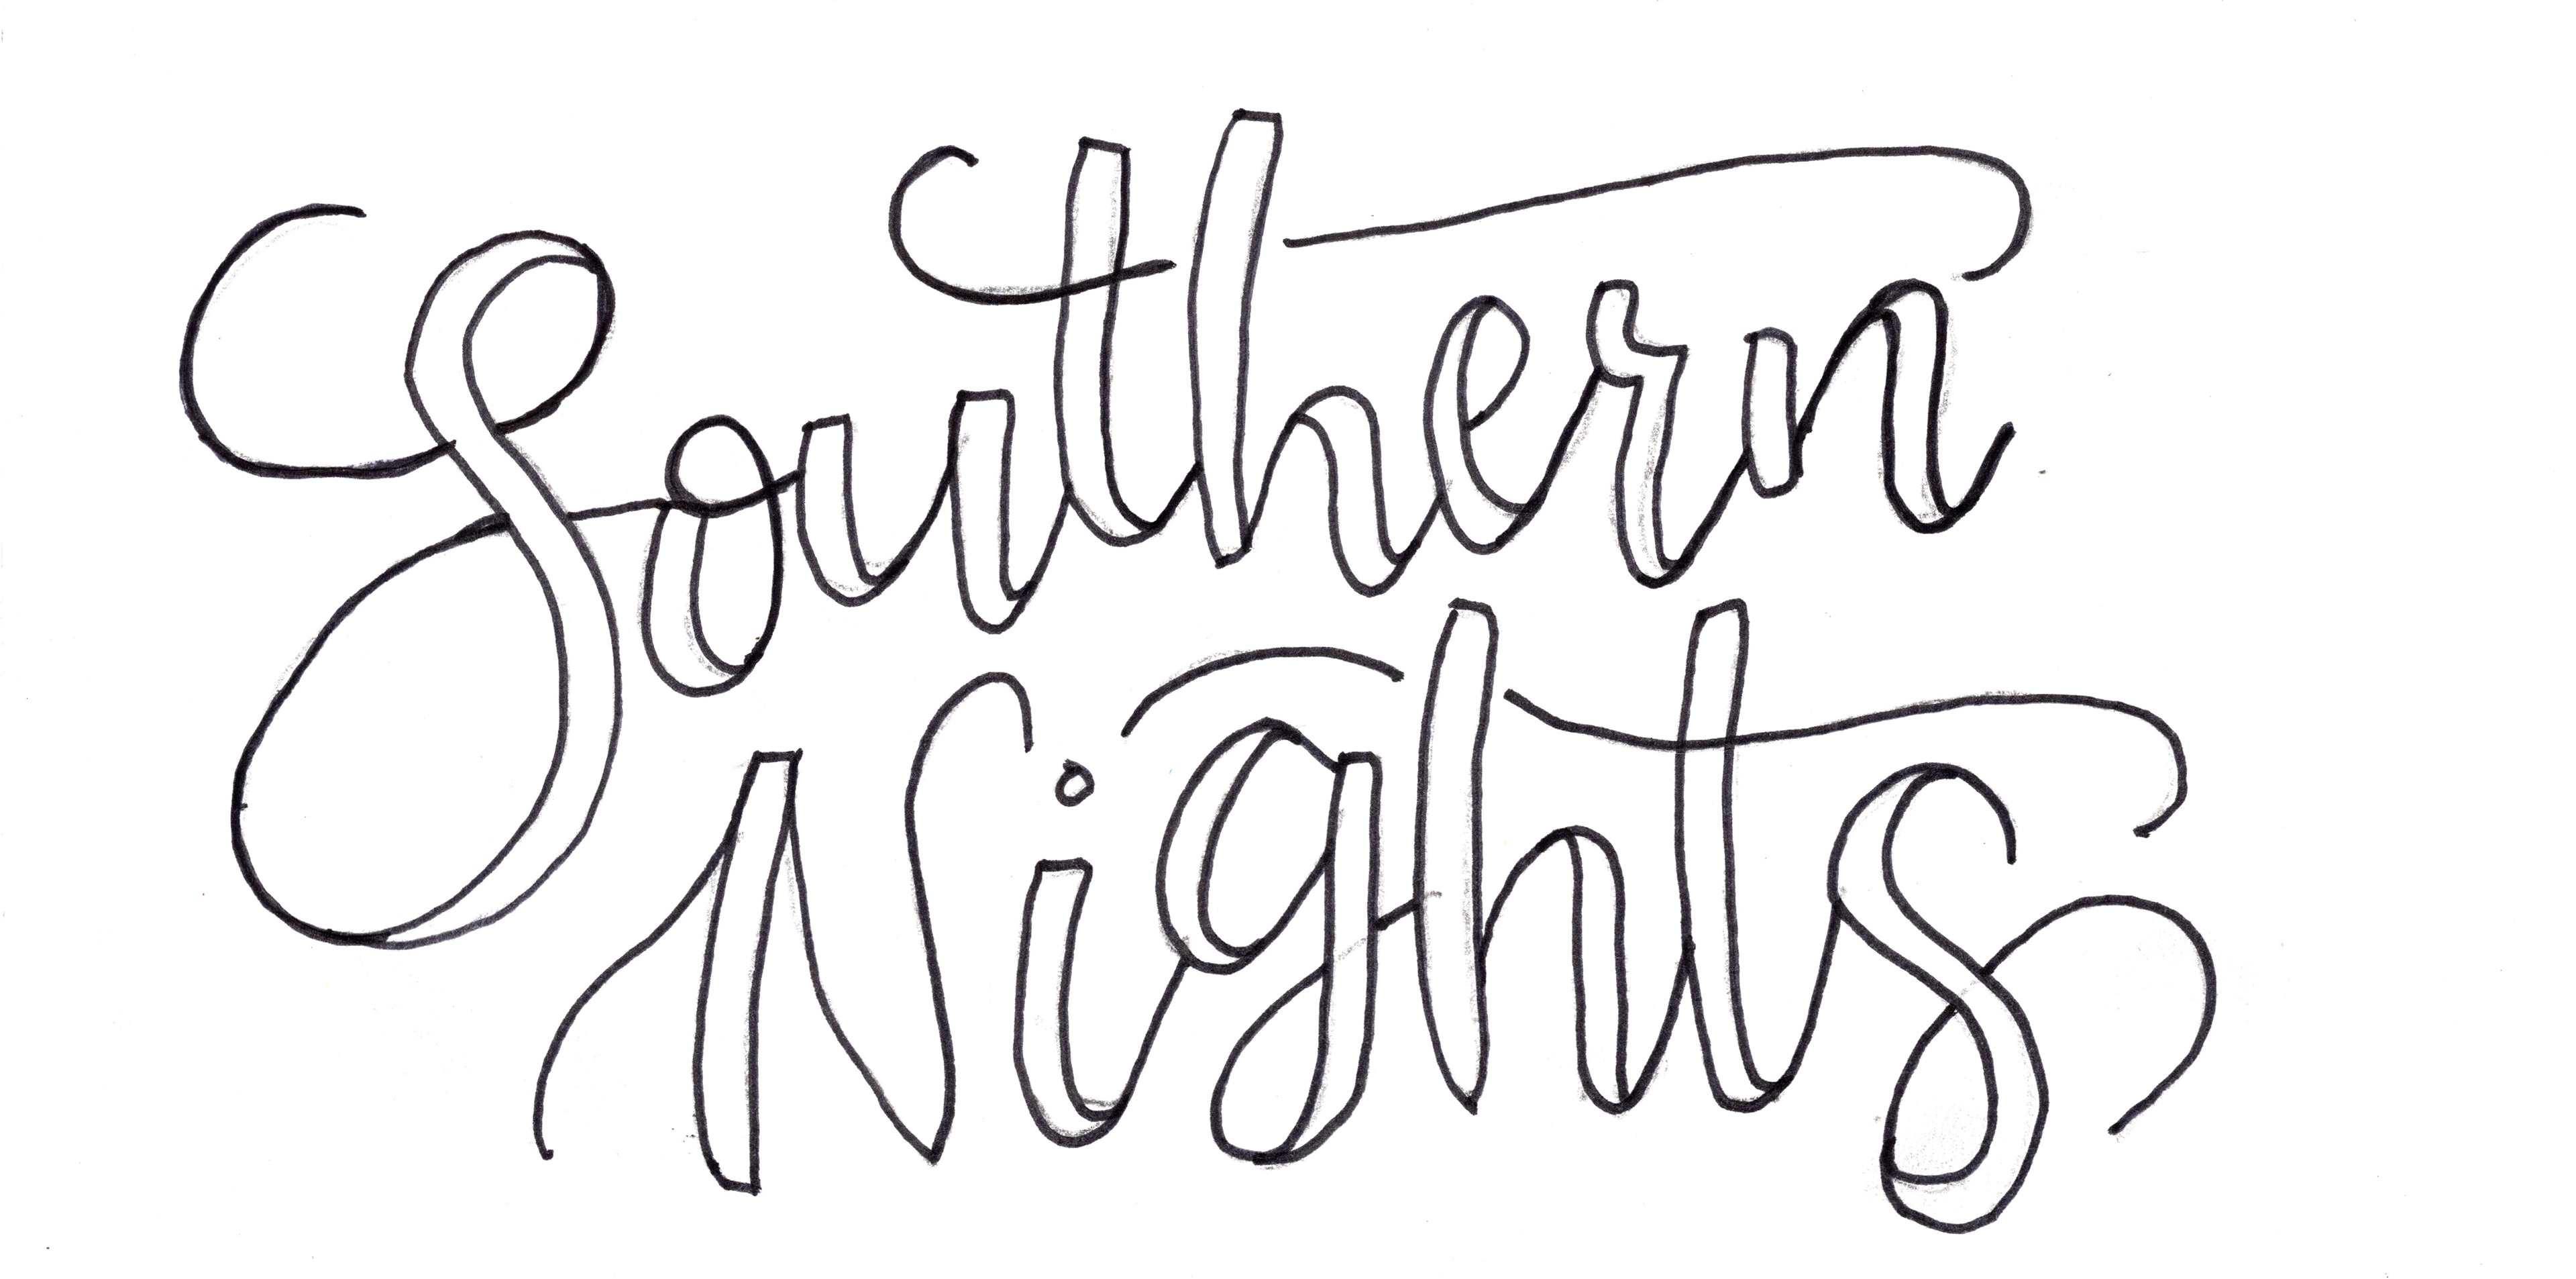 Southern
Nights